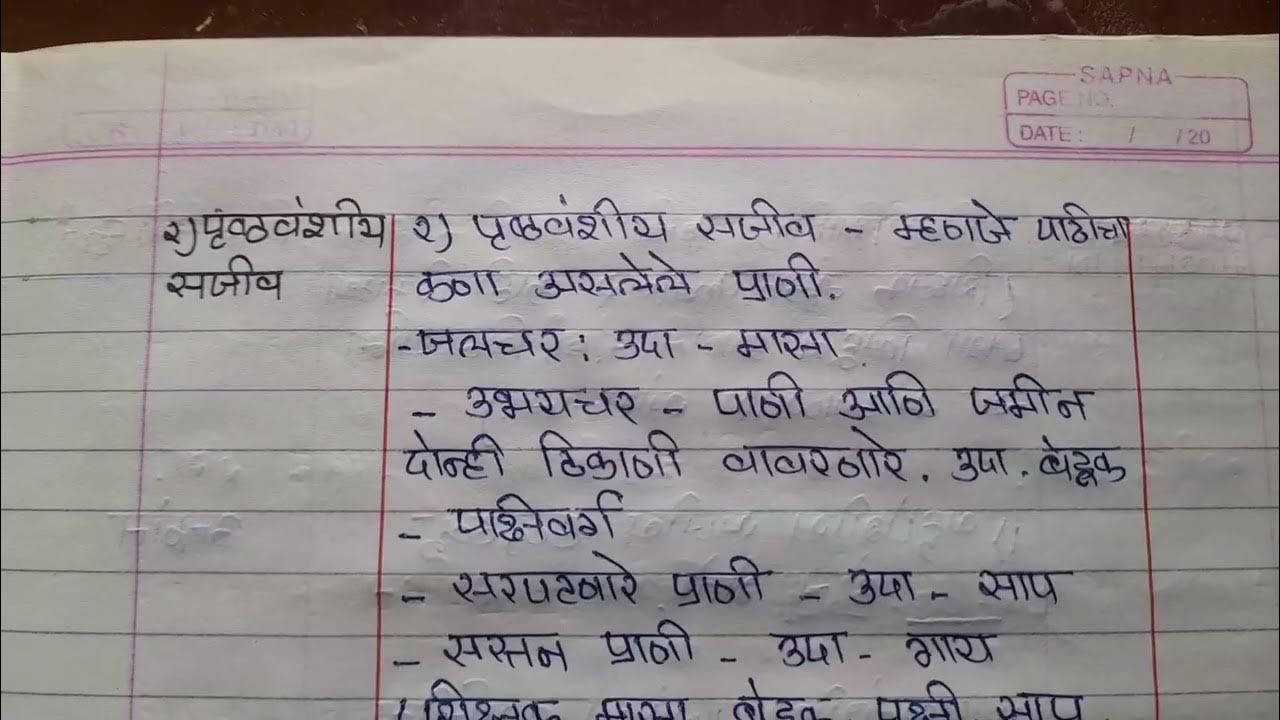 SAPNA
PAGE NO.
DATE: / /20
२) पृष्ठवंशीय सजीव
२) पृष्ठवंशीय सजीव - म्हणजे पाठीचा
कणा असलेले प्राणी.
- जलचर : उदा - मासा
- उभयचर - पाणी आणि जमीन
दोन्ही ठिकाणी वावरणारे. उदा. बेडूक
- पक्षिवर्ग
- सरपटणारे प्राणी - उदा - साप
- सस्तन प्राणी - उदा - गाय
(शिक्षक मासा बेडूक पक्षी साप